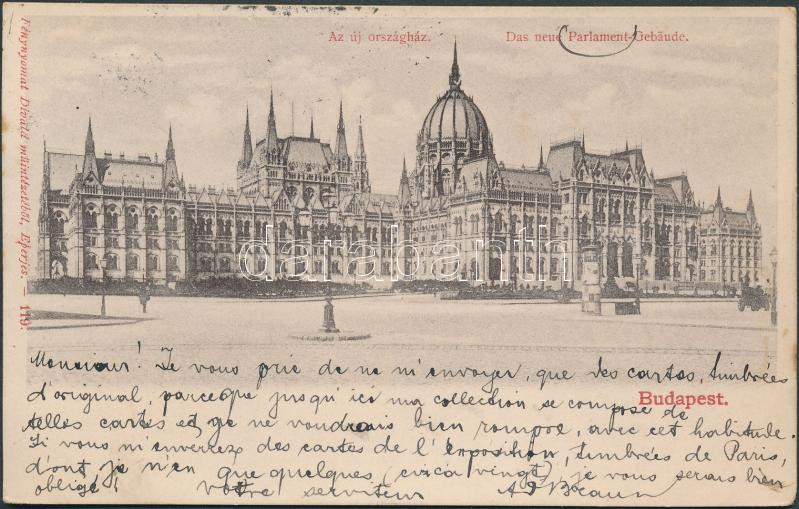 Az új országház.
Das neue Parlament-Gebäude.
Fénynyomat Divald műintézetéből, Eperjes. — 119.
darabanth
Monsieur! Je vous prie de ne m'envoyer, que des cartes, timbrées
d'original, parceque jusqu'ici ma collection se compose de
Budapest.
telles cartes et, je ne voudrais bien rompre, avec cet habitude.
Si vous m'enverrez des cartes de l'exposition, timbrées de Paris,
d'ont je n'en que quelques (circa vingt) je vous serais bien
obligé! votre serviteur